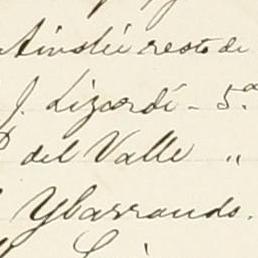 Ainslie resto de
J. Lizardi - 5.a
del Valle "
Ybarrando.